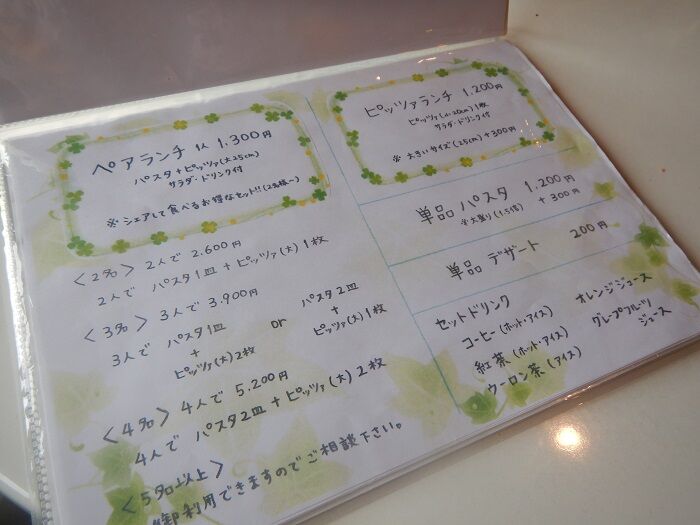 ペアランチ 1人 1,300円
パスタ+ピッツァ(大25cm)
サラダ・ドリンク付
※シェアして食べるお得なセット!!(2名様~)
<2名> 2人で 2,600円
2人で パスタ1皿+ピッツァ(大)1枚
<3名> 3人で 3,900円
3人で パスタ1皿 + ピッツァ(大)2枚 or パスタ2皿 + ピッツァ(大)1枚
<4名> 4人で 5,200円
4人で パスタ2皿+ピッツァ(大)2枚
<5名以上>
御利用できますのでご相談下さい。
ピッツァランチ 1,200円
ピッツァ(小20cm)1枚
サラダ・ドリンク付
※大きいサイズ(25cm)+300円
単品 パスタ 1,200円
※大盛り(1.5倍) +300円
単品 デザート 200円
セットドリンク
コーヒー(ホット・アイス)
紅茶(ホット・アイス)
ウーロン茶(アイス)
オレンジジュース
グレープフルーツ
ジュース